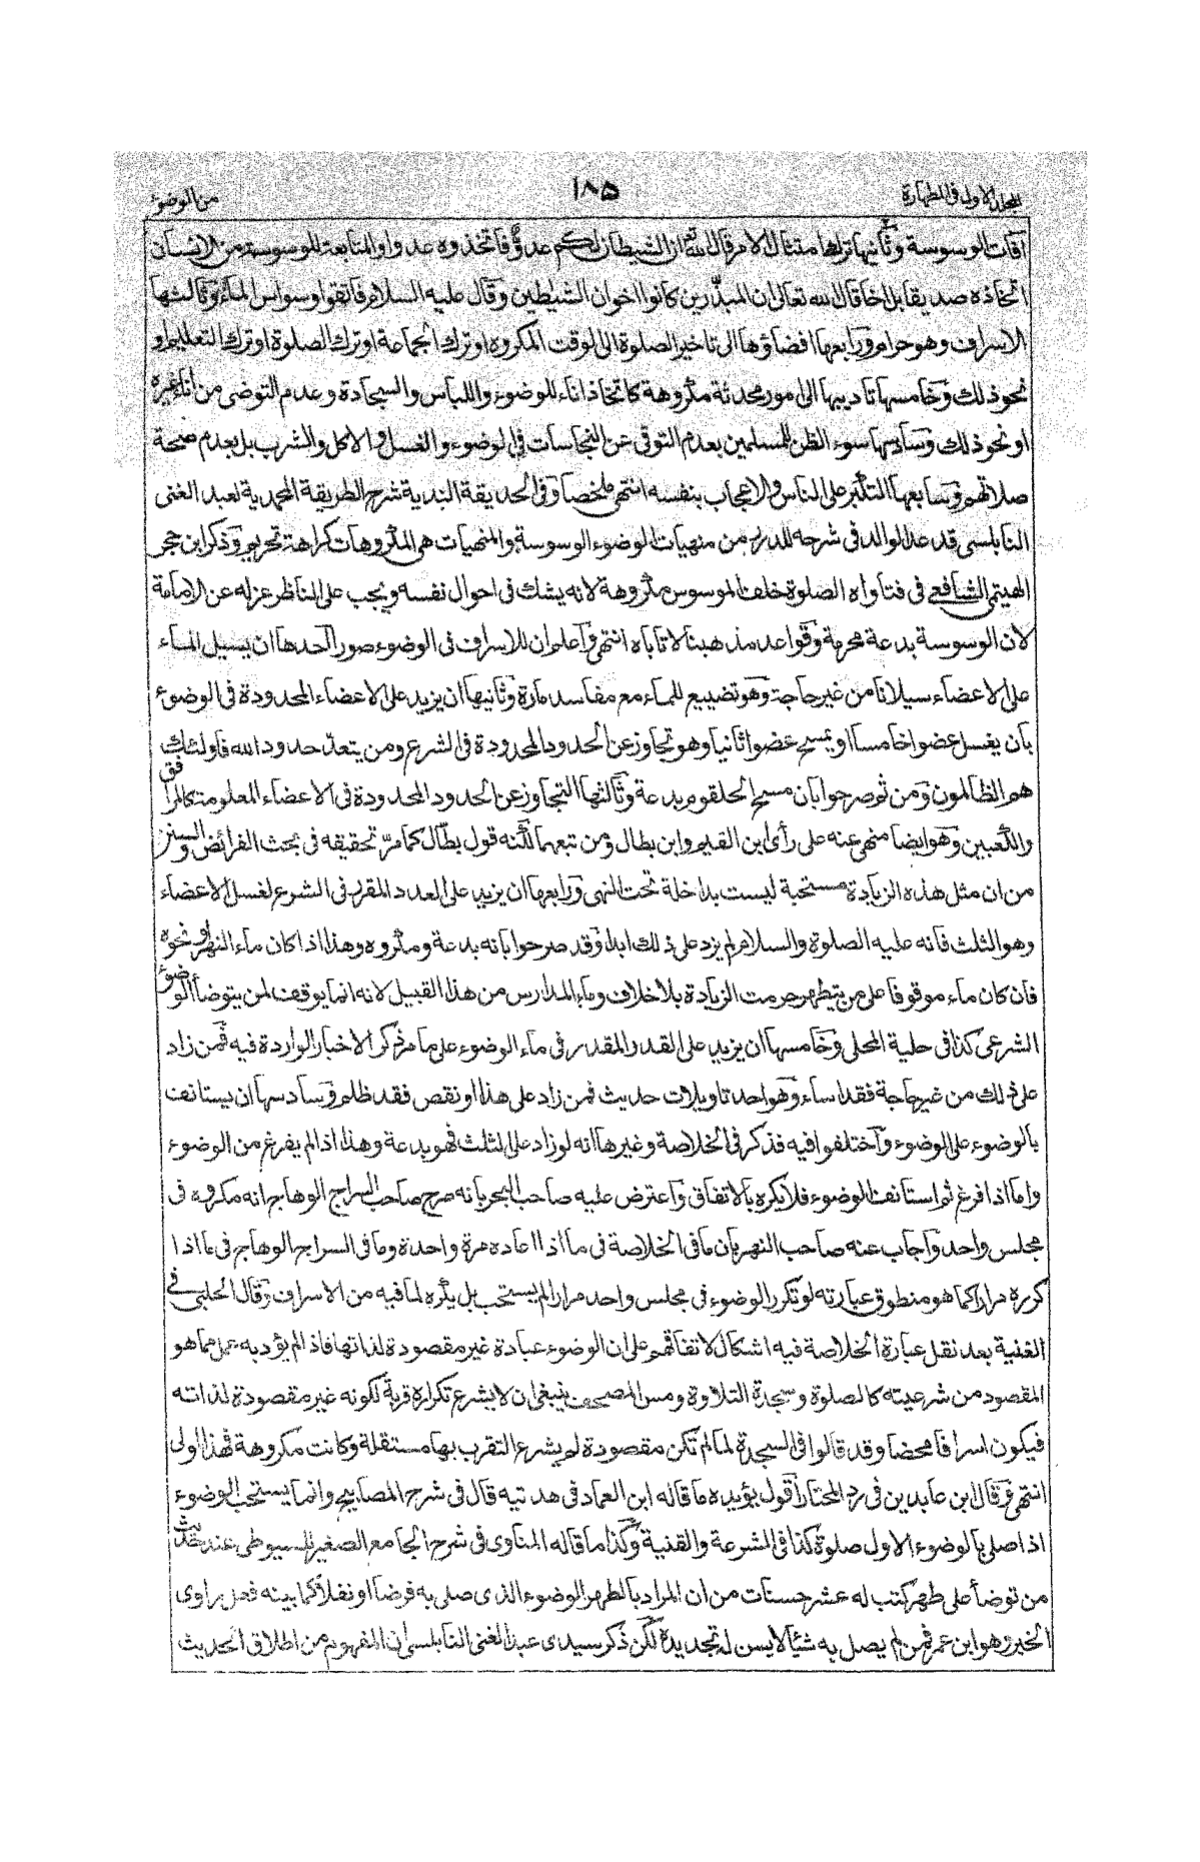 المجلد الاول فى الطهارة
١٨٥
من الوضوء
آفات الوسوسة وثانيها ترك امتثال الامر قال الله تعالى ان الشيطان لكم عدو فاتخذوه عدوا والمتابعة للوسوسة من الانسان
اتخاذه صديقا بل اخا قال الله تعالى ان المبذرين كانوا اخوان الشيطين وقال عليه السلام فاتقوا وسواس الماء وثالثها
الاسراف وهو حرام ورابعها افضاؤها الى تاخير الصلوة الى الوقت المكروه او ترك الجماعة او ترك الصلوة او ترك التعليم او
نحو ذلك وخامسها تاديبها الى امور محدثة مكروهة كاتخاذ اناء للوضوء واللباس والسجادة وعدم التوضى من اناء غيره
او نحو ذلك وسادسها سوء الظن للمسلمين بعدم التوقى عن النجاسات فى الوضوء والغسل والاكل والشرب بل بعدم صحة
صلاتهم وسابعها التكبر على الناس والاعجاب بنفسه انتهى ملخصا وفى الحديقة الندية شرح الطريقة المحمدية لعبد الغنى
النابلسى قد عد الوالد فى شرحه للدرر من منهيات الوضوء الوسوسة والمنهيات هى المكروهات كراهة تحريم وذكر ابن حجر
الهيتمى الشافعى فى فتاواه الصلوة خلف الموسوس مكروهة لانه يشك فى احوال نفسه ويجب على الناظر عزله عن الامامة
لان الوسوسة بدعة محرمة وقواعد مذهبنا لا تاباه انتهى واعلم ان للاسراف فى الوضوء صورا احدها ان يسيل الماء
على الاعضاء سيلانا من غير حاجة وهو تضييع للماء مع مفاسد مارة وثانيها ان يزيد على الاعضاء المحدودة فى الوضوء
بان يغسل عضوا خامسا او يمسح عضوا ثانيا وهو تجاوز عن الحدود المحدودة فى الشرع ومن يتعد حدود الله فاولئك
هم الظالمون ومن ثم صرحوا بان مسح الحلقوم بدعة وثالثها التجاوز عن الحدود المحدودة فى الاعضاء المعلومة كالمرافق
والكعبين وهو ايضا منهى عنه على رأى ابن القيم وابن بطال ومن تبعهما لكنه قول بطال كما مر تحقيقه فى بحث الفرائض والسنن
من ان مثل هذه الزيادة مستحبة ليست بداخلة تحت النهى ورابعها ان يزيد على العدد المقرر فى الشرع لغسل الاعضاء
وهو الثلث فانه عليه الصلوة والسلام لم يزد على ذلك ابدا وقد صرحوا بانه بدعة ومكروه وهذا اذا كان ماء النهر او نحوه
فان كان ماء موقوفا على من يتطهر حرمت الزيادة بلا خلاف وماء المدارس من هذا القبيل لانه انما يوقف لمن يتوضأ الوضوء
الشرعى كذا فى حلية المحلى وخامسها ان يزيد على القدر المقدر فى ماء الوضوء على ما مر ذكر الاخبار الواردة فيه فمن زاد
على ذلك من غير حاجة فقد اساء وهو احد تاويلات حديث فمن زاد على هذا او نقص فقد ظلم وسادسها ان يستانف
بالوضوء على الوضوء واختلفوا فيه فذكر فى الخلاصة وغيرها انه لو زاد على الثلث فهو بدعة وهذا اذا لم يفرغ من الوضوء
واما اذا فرغ ثم استانف الوضوء فلا يكره بالاتفاق واعترض عليه صاحب البحر بانه صرح صاحب السراج الوهاج انه مكروه فى
مجلس واحد واجاب عنه صاحب النهر بان ما فى الخلاصة فى ما اذا اعاده مرة واحدة وما فى السراج الوهاج فى ما اذا
كرره مرارا كما هو منطوق عبارته لو تكرر الوضوء فى مجلس واحد مرارا لم يستحب بل يكره لما فيه من الاسراف وقال الحلبى فى
الغنية بعد نقل عبارة الخلاصة فيه اشكال لاتفاقهم على ان الوضوء عبادة غير مقصودة لذاتها فاذا لم يؤد به عمل مما هو
المقصود من شرعيته كالصلوة وسجدة التلاوة ومس المصحف ينبغى ان لا يشرع تكراره قربة لكونه غير مقصودة لذاته
فيكون اسرافا محضا وقد قالوا فى السجدة لما لم تكن مقصودة لم يشرع التقرب بها مستقلة وكانت مكروهة فهذا اولى
انتهى وقال ابن عابدين فى رد المحتار اقول يؤيده ما قاله ابن العماد فى هديته قال فى شرح المصابيح وانما يستحب الوضوء
اذا صلى بالوضوء الاول صلوة كذا فى الشرعة والقنية وكذا ما قاله المناوى فى شرح الجامع الصغير للسيوطى عند حديث
من توضأ على طهر كتب له عشر حسنات من ان المراد بالطهر الوضوء الذى صلى به فرضا او نفلا كما بينه فعل راوى
الخبر وهو ابن عمر فمن لم يصل به شيئا لا يسن له تجديده لكن ذكر سيدى عبد الغنى النابلسى ان المفهوم من اطلاق الحديث